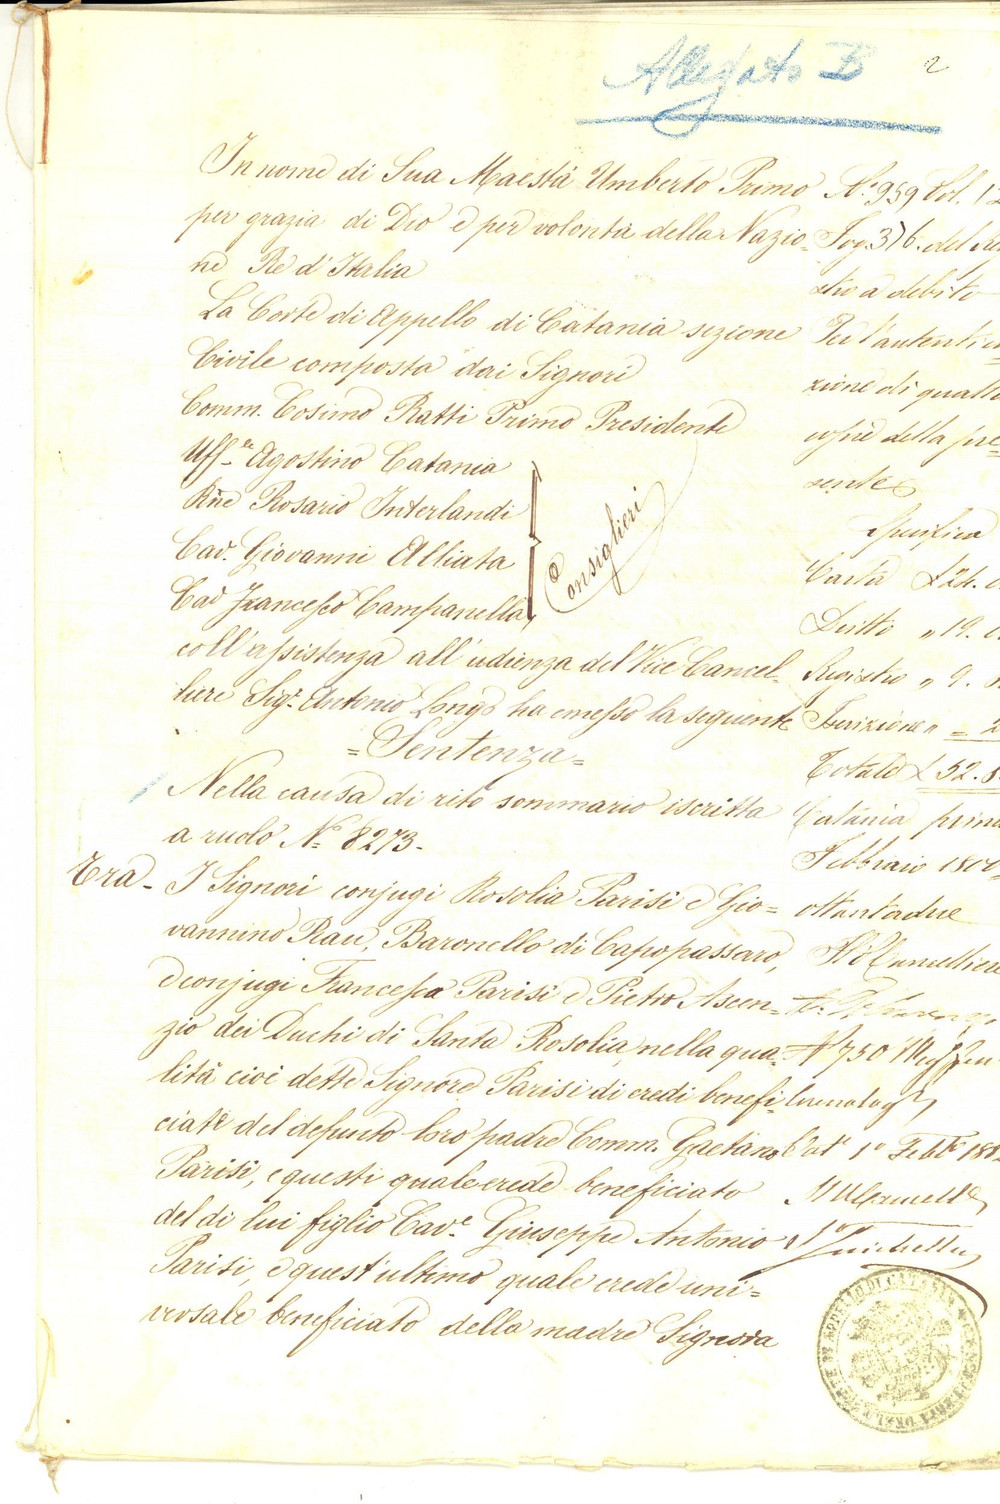 Allegato B
2
In nome di Sua Maestà Umberto Primo
per grazia di Dio e per volontà della Nazio=
ne Re d'Italia
La Corte di Appello di Catania sezione
Civile composta dai Signori
Comm. Cosimo Ratti Primo Presidente
Uff.le Agostino Catania
Rosario Interlandi
Cav. Giovanni Alliata
Cav Francesco Campanella
Consiglieri
coll'assistenza all'udienza del Vice Cancel=
liere Sigr. Antonio Longo ha emesso la seguente
=Sentenza=
Nella causa di rito sommario iscritta
a ruolo No 8273.
Tra - I Signori conjugi Rosolia Parisi e Gio=
vannino Rau, Baronello di Capopassaro,
e conjugi Francesca Parisi e Pietro Ascen=
zio dei Duchi di Santa Rosolia, nella qua=
lità cioè dette Signore Parisi di eredi benefi=
ciate del defunto loro padre Comm. Gaetano
Parisi, e questi quale erede beneficiato
del di lui figlio Cave. Giuseppe Antonio
Parisi, e quest'ultimo quale erede uni=
versale beneficiato della madre Signora
No 959 Vol. 12
Fog. 376. del
a debito
Per l'autentica
zione di quatt
copie della pre=
sente
Specifica
Carta £ 24.
Diritti " 19.
Registro " 9.
Iscrizione " = 2
Totale £ 52. 8
Catania primo
Febbraio 18
ottantadue
Il V Cancelliere
No 730
Cat 1o Febb 188